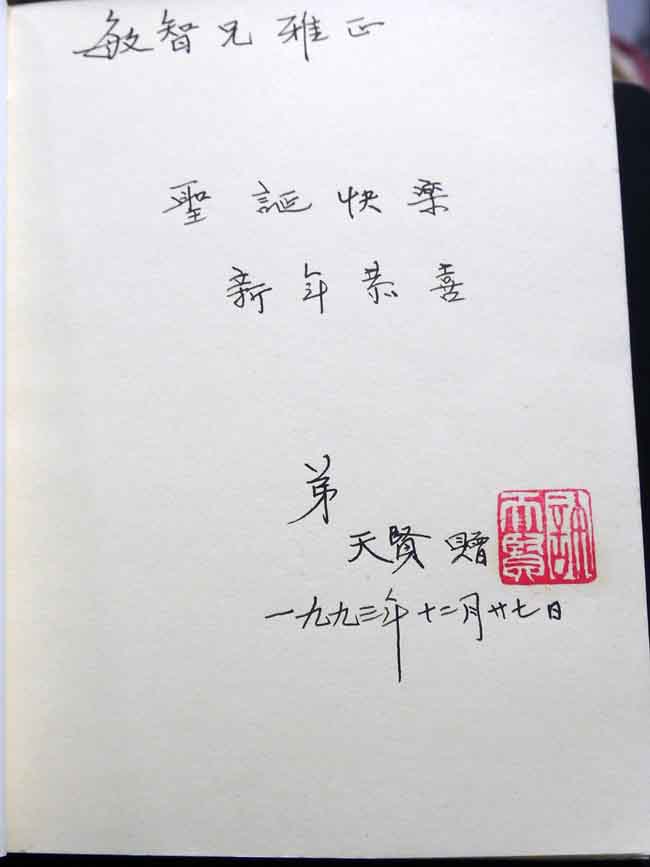 敏智兄雅正
聖誕快楽
新年恭喜
弟
天賢贈
天賢
一九九三年十二月廿七日